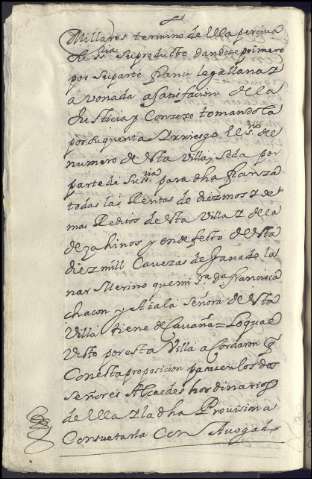 Millares termino de Ella perciva
su Producto dandose primero
por su parte fianza lega llana y
avonada a Satisfacion de la
Justicia y Consexo tomandola
por su quenta y Riesgo el ss.no de
numero de esta Villa, y se da por
parte de su s.ria para dha fianza
todas las Rentas de diezmos y de
mas Pedios de esta Villa y de la
de zahinos y en defecto de esta
diez mill Cavezas de Ganado la
nar Merino que mi s.ra d.a francisca
chacon y Aiala Señora de esta
Villa tiene de Cavaña = Lo qual
Visto por esta Villa acordaron q.e
Con esta proposicion pasasen los dos
señores Alcaldes hordinarios
de Ella a la dha Provisima
Consultarla Con Avogado